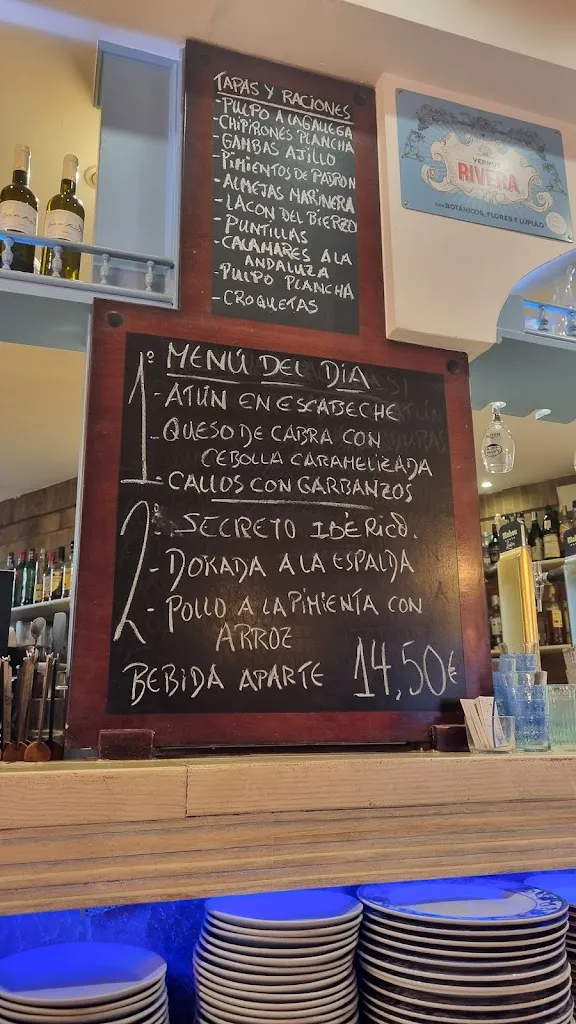 TAPAS Y RACIONES
-PULPO A LA GALLEGA
-CHIPIRONES PLANCHA
-GAMBAS AJILLO
-PIMIENTOS DE PADRON
-ALMEJAS MARINERA
-LACON DEL BIERZO
-PUNTILLAS
-CALAMARES A LA
ANDALUZA
-PULPO PLANCHA
-CROQUETAS
VERMUT
RIVERA
BOTÁNICOS, FLORES Y LÚPULO
1º MENÚ DEL DÍA
-ATÚN EN ESCABECHE
-QUESO DE CABRA CON
CEBOLLA CARAMELIZADA
-CALLOS CON GARBANZOS
2º -SECRETO IBÉRICO.
-DORADA A LA ESPALDA
-POLLO A LA PIMIENTA CON
ARROZ
BEBIDA APARTE 14,50€